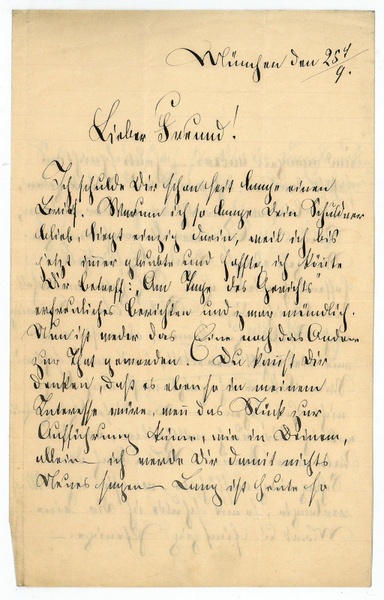 München den 25t/9.
Lieber Freund!
Ich schulde Dir schon seit lange einen
Brief. Warum ich so lange Dein Schuldner
blieb, liegt einzig darin, weil ich bis
jetzt immer glaubte und hoffte, ich könnte
Dir betreff: „Am Tage des Gerichts"
erfreuliches berichten und zwar mündlich.
Nun ist weder das Eine noch das Andere
zur That geworden. Du kannst Dir
denken, daß es ebenso in meinem
Interesse wäre, wenn das Stück zur
Aufführung käme, wie in Deinem,
allein – ich werde Dir damit nichts
Neues sagen – Lang ist heute so